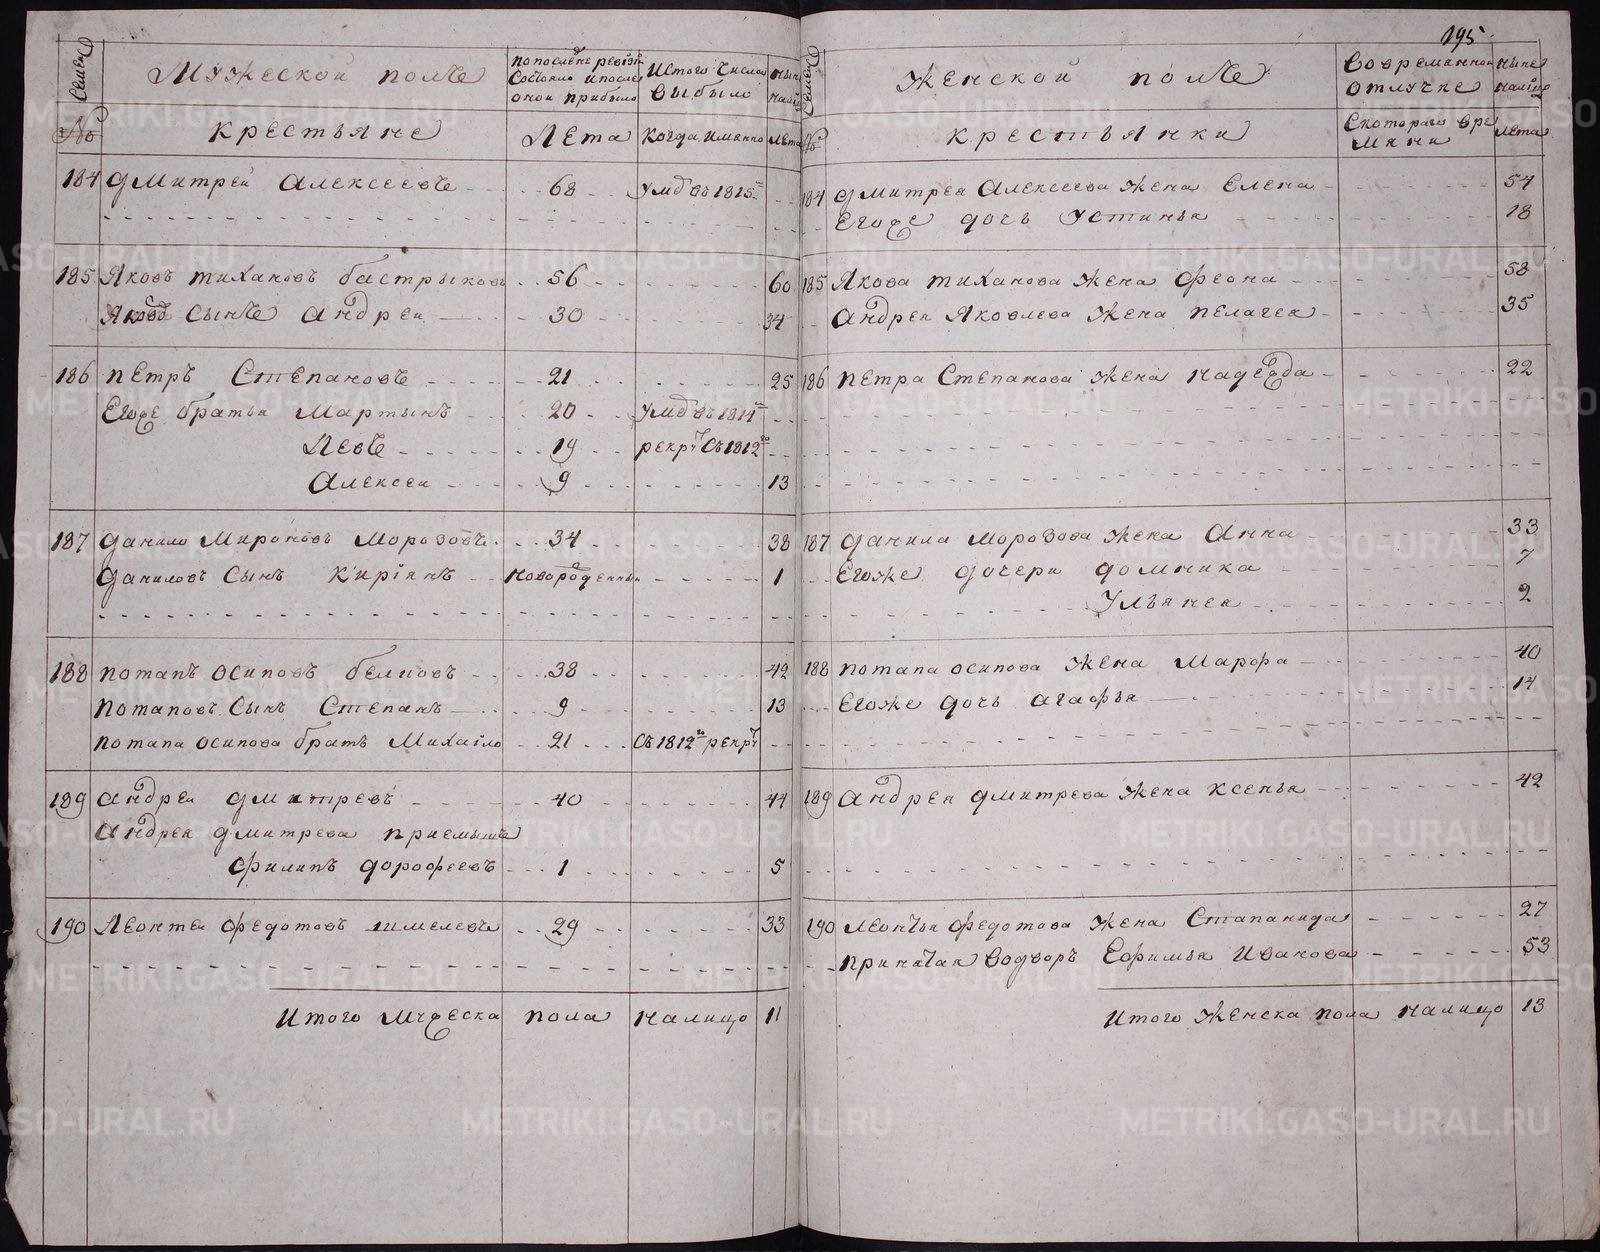 195.
Семей
Мужеской полъ
По последне ревизи
Состояло и после
оной прибыло
Изтого числа
выбыло
ныне
налицо
№
крестьяне
Лета
когда имянно
лета
184 Дмитрей Алексеевъ 68 умръ въ 1815
185 Яковъ Тихановъ Бастрыковъ 56 60
Яковъ сынъ Андреи 30 34
186 Петръ Степановъ 21 25
Егоже братья Мартынъ 20 умръ въ 1814
Левъ 19 рекрут съ 1812го
Алексеи 9 13
187 Данило Мироновъ Морозовъ 34 38
Даниловъ сынъ Кирiянъ новорожденны 1
188 Потапъ Осиповъ Белковъ 38 42
Потаповъ сынъ Степанъ 9 13
Потапа Осипова братъ Михаiло 21 съ 1812го рекрут
189 Андреи Дмитревъ 40 44
Андрея Дмитрева приемышъ
Филипъ Дорофеевъ 1 5
190 Леонтеи Федотовъ Шмелевъ 29 33
Итого мужеска пола налицо 11
Семей
Женской полъ
Вовременнои
отлучке
ныне
налицо
№
крестьянки
Скотораго вре
мяни
лета
184 Дмитрея Алексеева жена Елена 54
Егоже дочь Устинья 18
185 Якова Тиханова жена Феона 58
Андрея Яковлева жена Пелагея 35
186 Петра Степанова жена Надежда 22
187 Данила Морозова жена Анна 33
Егоже дочери Домника 7
Ульянея 2
188 Потапа Осипова жена Марфа 40
Егоже дочь Агафья 14
189 Андрея Дмитрева жена Ксенья 42
190 Леонтья Федотова жена Стапанида 27
Принятая водворъ Ефимья Иванова 53
Итого женска пола налицо 13
METRIKI.GASO-URAL.RU